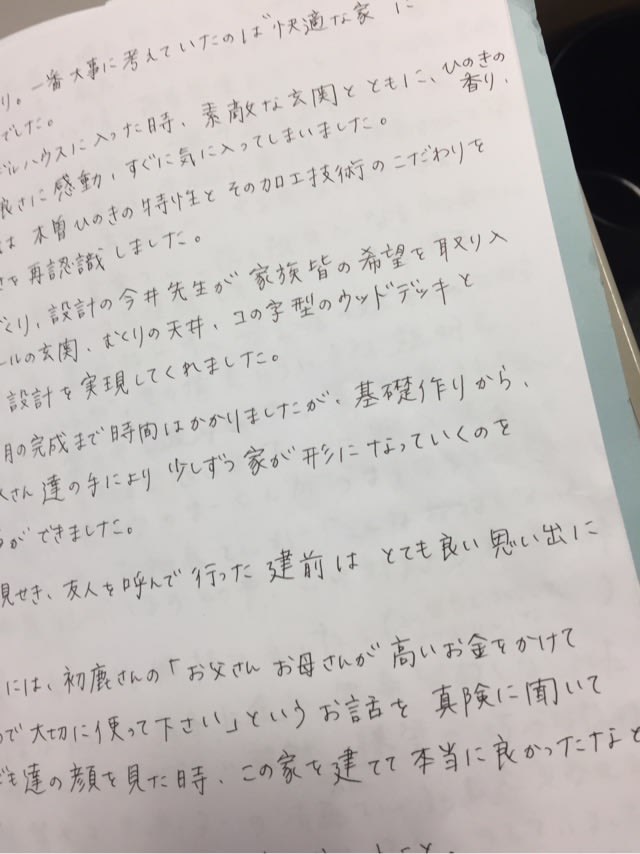 り。一番大事に考えていたのは"快適な家"に
でした。
デルハウスに入った時、素敵な玄関とともに、ひのきの香り、
良さに感動、すぐに気に入ってしまいました。
は 木曽ひのきの特性と その加工技術のこだわりを
さを再認識しました。
くり、設計の今井先生が 家族皆の希望を取り入
ールの玄関、むくりの天井、コの字型のウッドデッキと
設計を実現してくれました。
月の完成まで時間はかかりましたが、基礎作りから、
さん達の手により 少しずつ家が形になっていくのを
ができました。
見せき、友人を呼んで行った建前は とても良い思い出に
には、初鹿さんの「お父さん お母さんが高いお金をかけて
で大切に使って下さい」というお話を 真険に聞いて
ども達の顔を見た時、この家を建てて本当に良かったなと